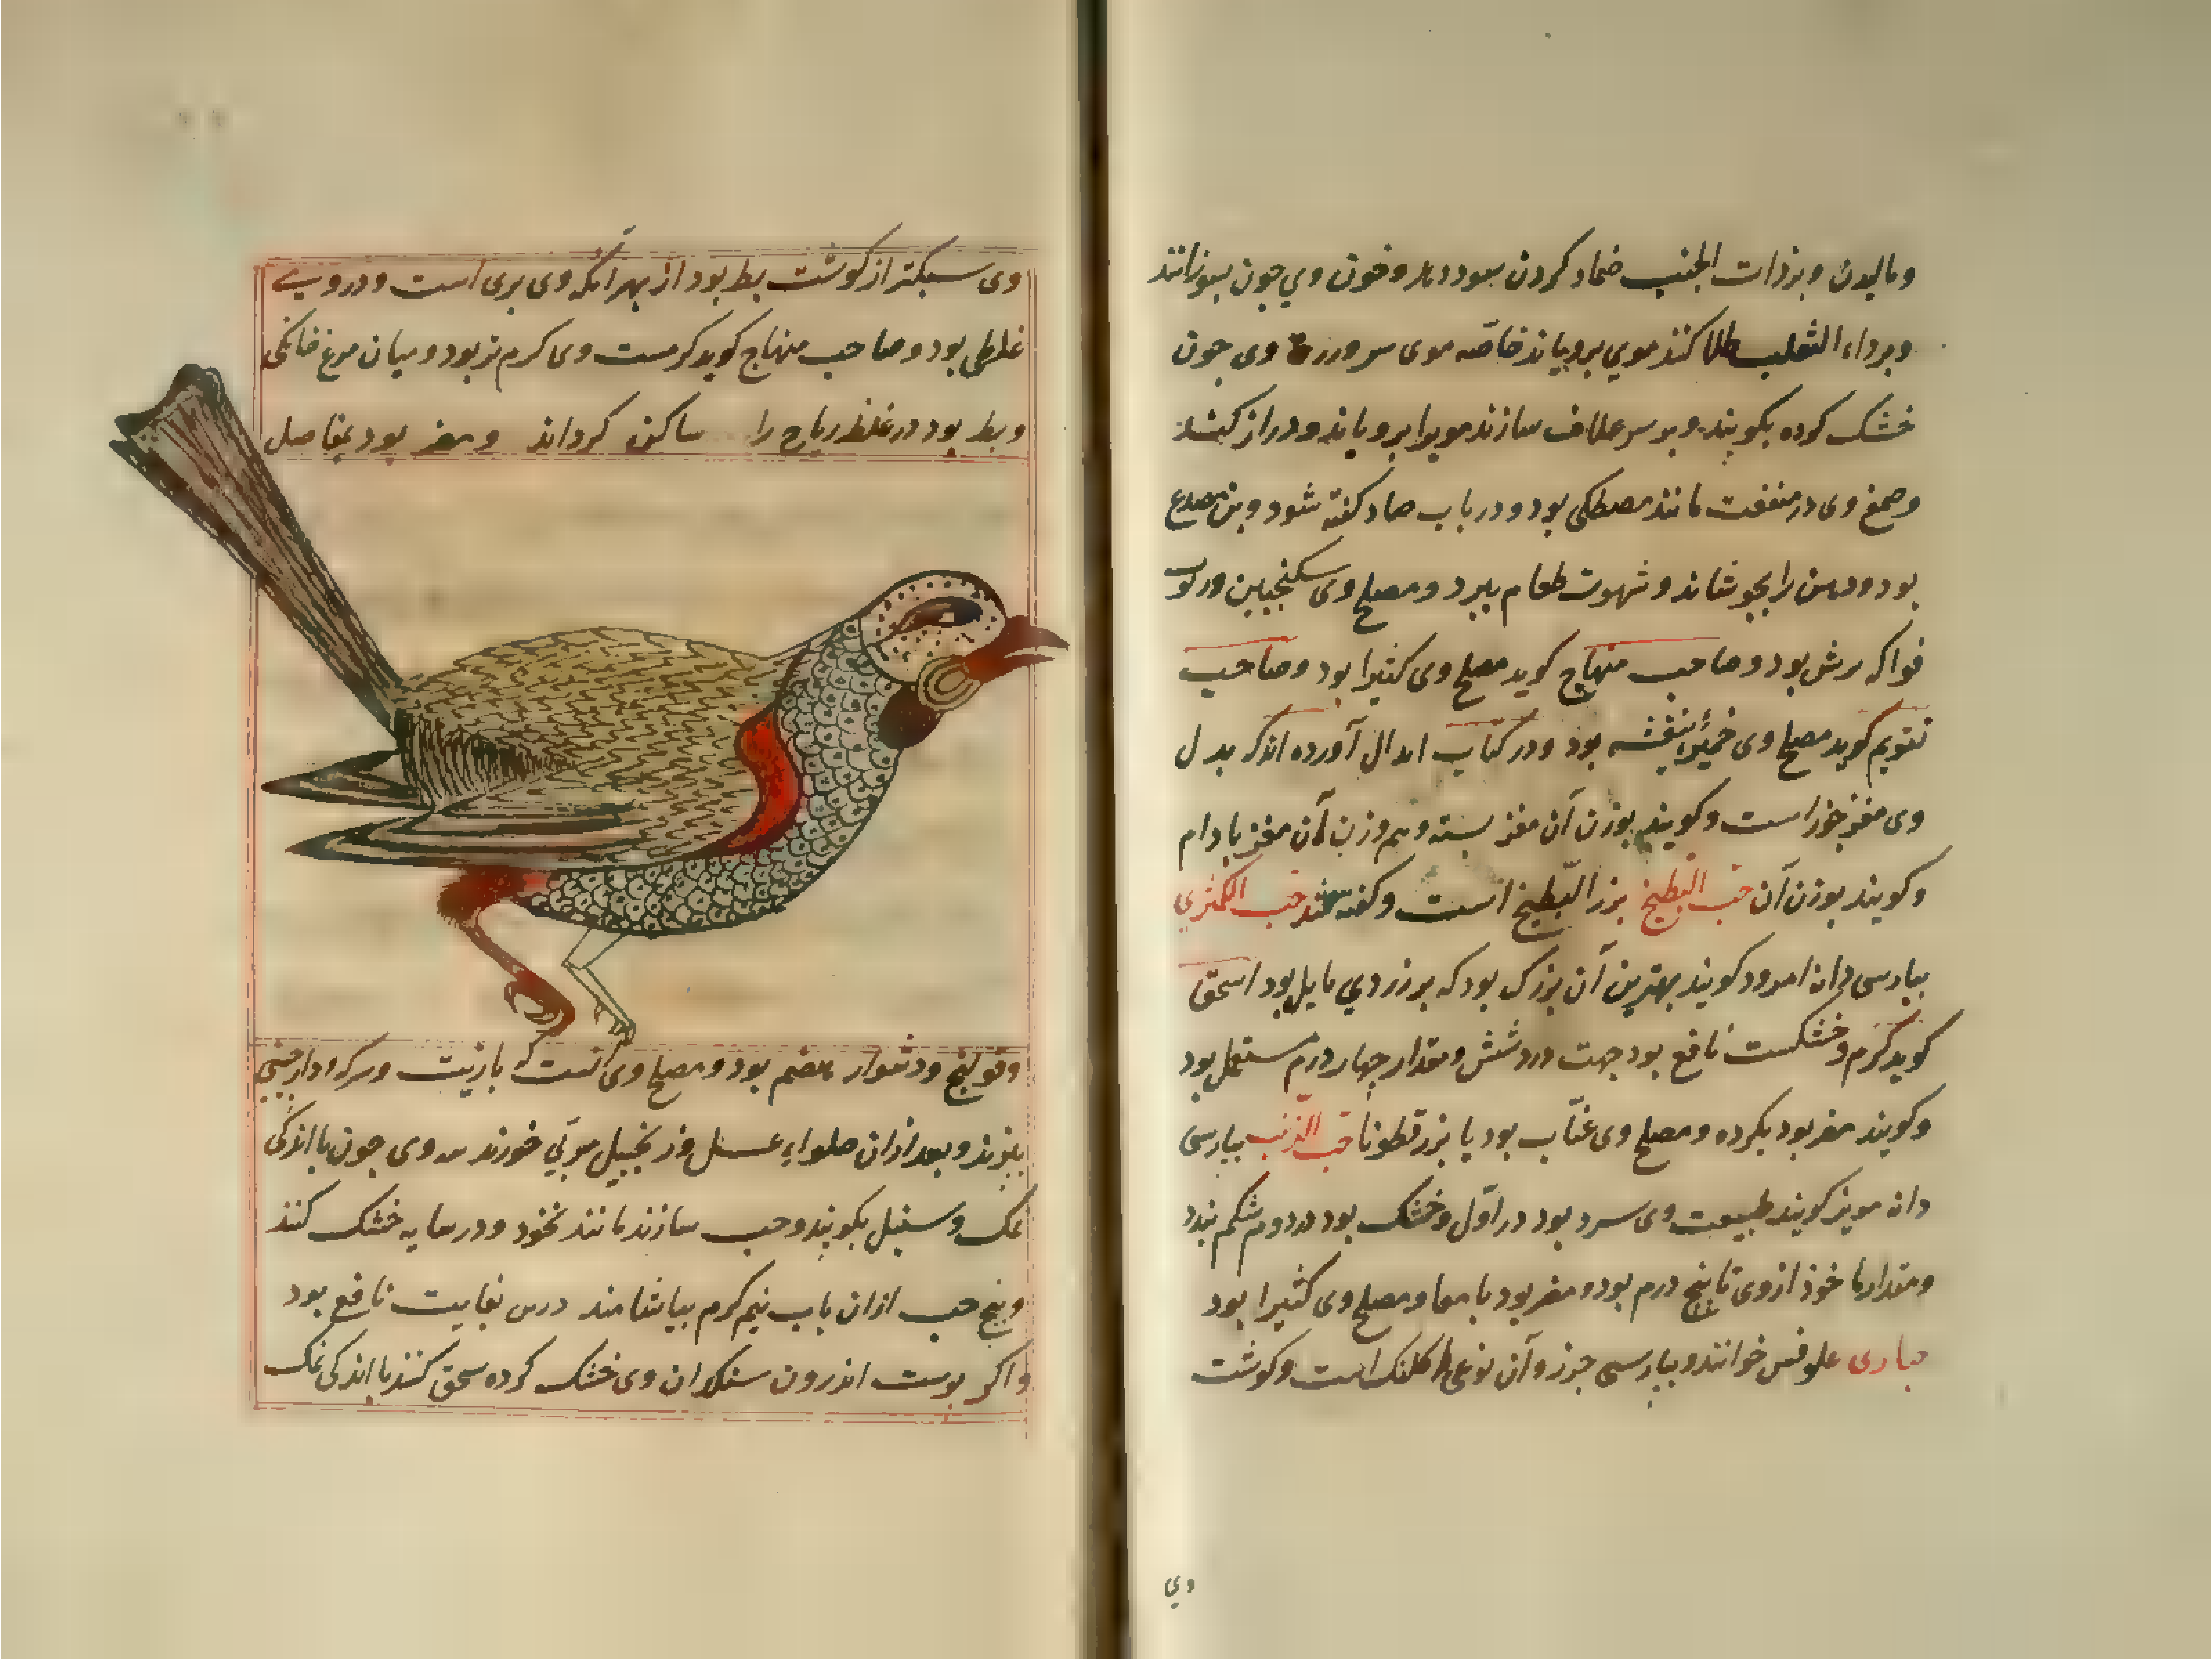 و مالیدن و بر ذات الجنب ضماد کردن سود دهد و خون وي جون بسوزانند
و بر داء الثعلب طلا کنند موي برویاند خاصّه موی سر و وی جون
خشک کوده بکوبند و بر سر علاف سازند مویرا برویاند و دراز کند
و صمغ وی در منفعت مانند مصطکی بود و در باب صاد کفته شود و بن مصدع
بود و دهن را بجوشاند و شهوت طعام ببرد و مصلح وی سکنجبین و رب
فواکه ترش بود و صاحب منهاج کوید مصلح وی کثیرا بود و صاحب
تقویم کوید مصلح وی خمیره بنفشه بود و در کتاب ابدال آورده اند که بدل
وی مغز جوز است و کویند بوزن آن مغز بسته و هم وزن آن مغز بادام
و کویند بوزن آن حب البطیخ بزر البّطیخ است و کفته شد حب الکمثری
بپارسی دانه امرود کویند بهترین آن بزرک بود که بزردي مایل بود اسحق
کوید کرم و خشکست نافع بود جهت درد شش و مقدار جهار درم مستعمل بود
و کویند مضر بود بکرده و مصلح وی عنّاب بود یا بزر قطونا حب الزبیب بپارسی
دانه مویز کویند طبیعت وی سرد بود در اوّل و خشک بود در دوم شکم بندد
و مقدار ماخوذ از وی تا پنج درم بود و مضر بود با معا و مصلح وی کثیرا بود
حباری علوفس خوانند و بپارسی جرز و آن نوعی از کلنک است و کوشت
وي
وی سبکتر از کوشت بط بود از بهر آنکه وی بری است و در وی
غلظی بود و صاحب منهاج کوید کرمست وی کرم تر بود و میان مرغ خانکی
و بط بود در غلظ ریاح را ساکن کرداند و مضر بود بمفاصل
و قولنج و دشوار هضم بود و مصلح وی آنست که بازیت و سرکه و دارجینی
بپزند و بعد از ان حلواء عسل و زنجبیل مربّي خورند وی جون با اندکی
نمک و سنبل بکوبند و حب سازند مانند نخود و در سایه خشک کنند
و پنج حب از ان باب نیم کرم بیاشامند بغایت نافع بود
و اکر بوست اندرون سنکدان وی خشک کرده سحق کنند با اندکی نمک